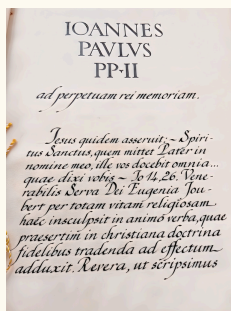 IOANNES
PAVLVS
PP·II
ad perpetuam rei memoriam.
Jesus quidem asseruit: ~ Spiri-
tus Sanctus, quem mittet Pater in
nomine meo, ille vos docebit omnia...
quae dixi vobis ~ Jo 14,26. Vene-
rabilis Serva Dei Eugenia Jou-
bert per totam vitam religiosam
haec insculpsit in animo verba, quae
praesertim in christiana doctrina
fidelibus tradenda ad effectum
adduxit. Rerera, ut scripsimus